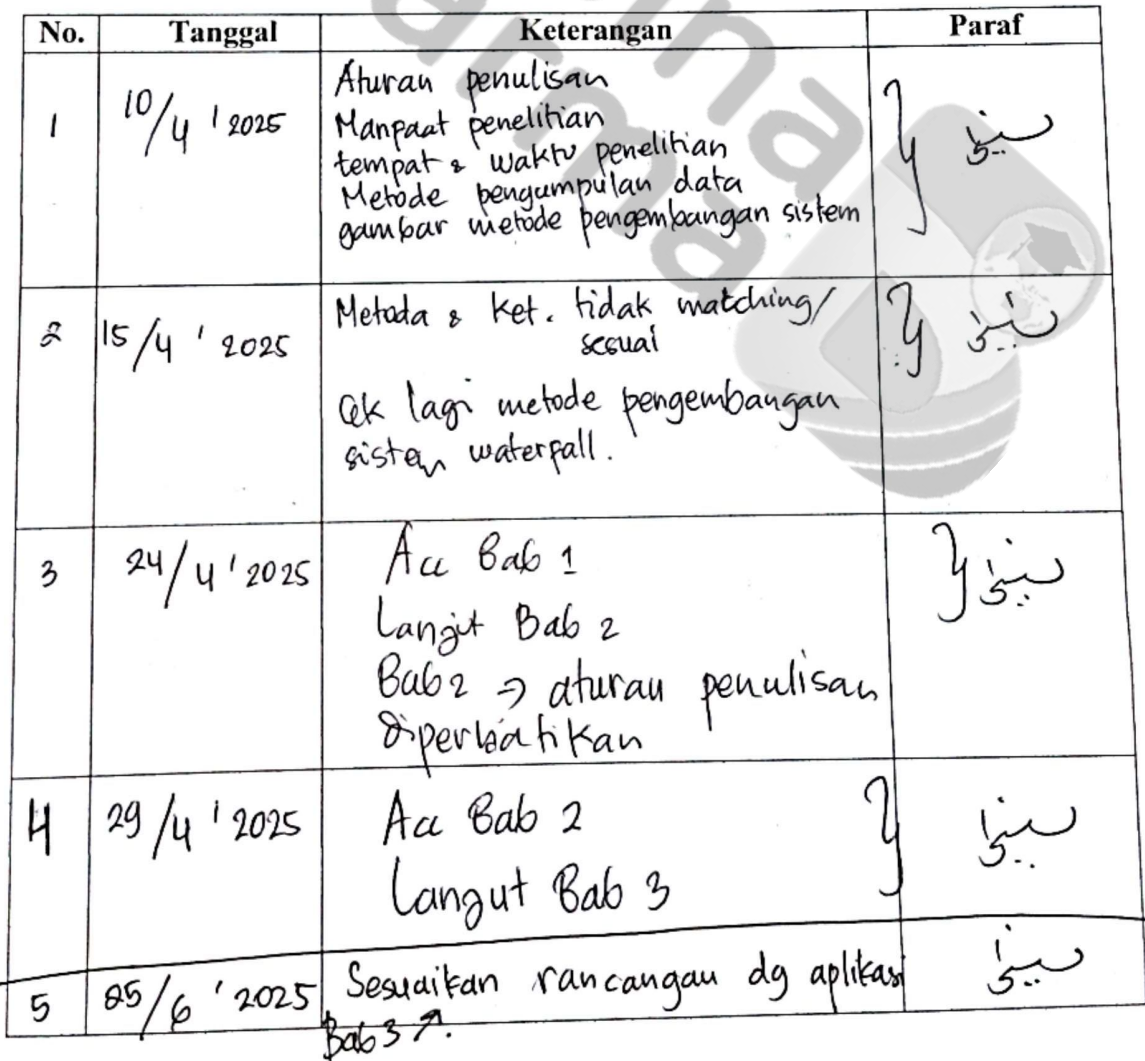 No. Tanggal Keterangan Paraf
1 10/4 '2025 Aturan penulisan
Manpaat penelitian
tempat & waktu penelitian
Metode pengumpulan data
gambar metode pengembangan sistem
2 15/4 '2025 Metoda & ket. tidak matching/
sesuai
Cek lagi metode pengembangan
sistem waterfall.
3 24/4 '2025 Acc Bab 1
Lanjut Bab 2
Bab 2 → aturan penulisan
diperhatikan
4 29/4 '2025 Acc Bab 2
Lanjut Bab 3
5 25/6 '2025 Sesuaikan rancangan dg aplikasi
Bab 3 ↗.